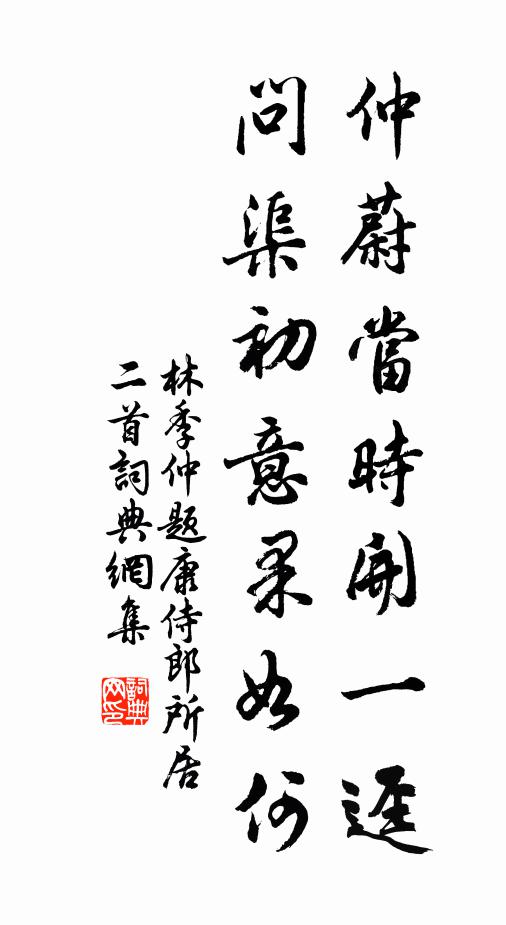 仲蔚當時開一逕
問渠初意果如何
林季仲題康侍郎所居
二首詞典網集
詞典网印